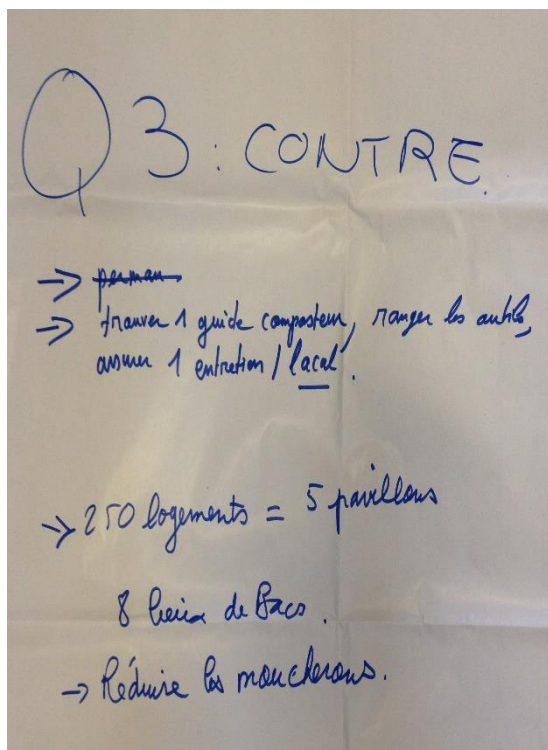 Q3 : CONTRE.
→ perman
→ trouver 1 guide composteur, ranger les outils,
assurer 1 entretien / local.
→ 250 logements = 5 pavillons
8 lieux de Bacs.
→ Réduire les moucherons.